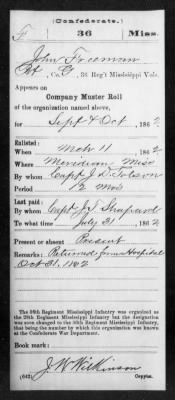 (Confederate.)
F 36 Miss.
John Freeman
Pvt, Co. G, 36 Reg't Mississippi Vols.
Appears on
Company Muster Roll
of the organization named above,
for Sept & Oct, 1862
Enlisted:
When Mch 11, 1862
Where Meridian Miss
By whom Capt J. D.
Period 12 Mos
Last paid:
By whom Capt J. J. Shepard
To what time July 31, 1862
Present or absent Present
Remarks: Returned from Hospital
Oct 31, 1862
The 36th Regiment Mississippi Infantry was organized as
the 25th Regiment Mississippi Infantry but the designation
was soon changed to the 36th Regiment Mississippi Infantry,
that being the number by which this organization was known
at the Confederate War Department.
Book mark:
J. W. Wilkinson
(642) Copyist.